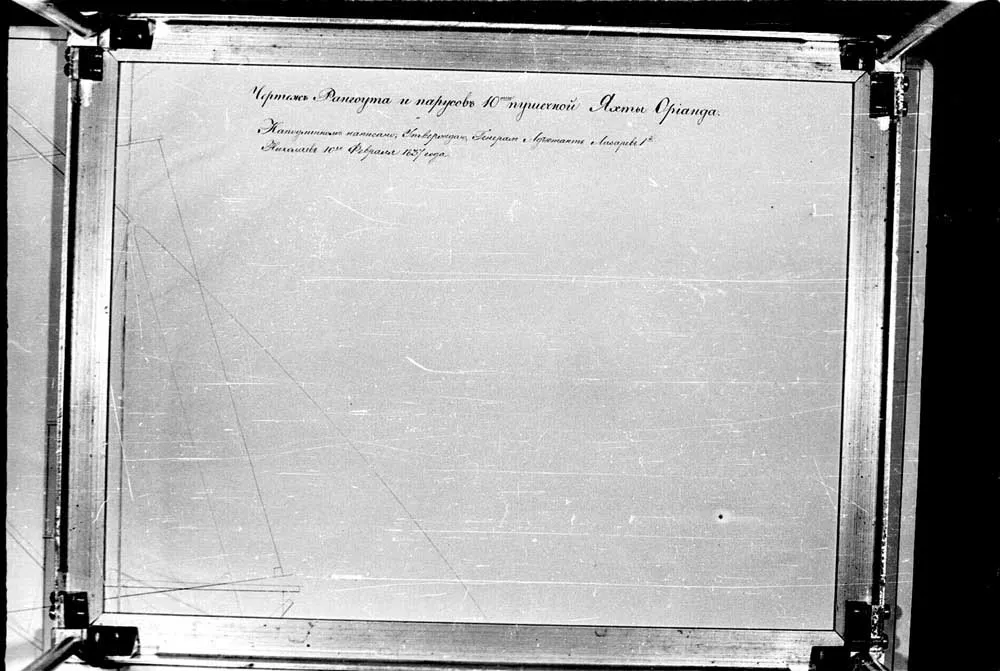 Чертежъ Рангоута и парусовъ 10ти пушечной Яхты Орiанда.
На подлинномъ написано, Утверждаю, Генерал Адъютантъ Лазаревъ 1й
Николаевъ 10го Февраля 1837 года.